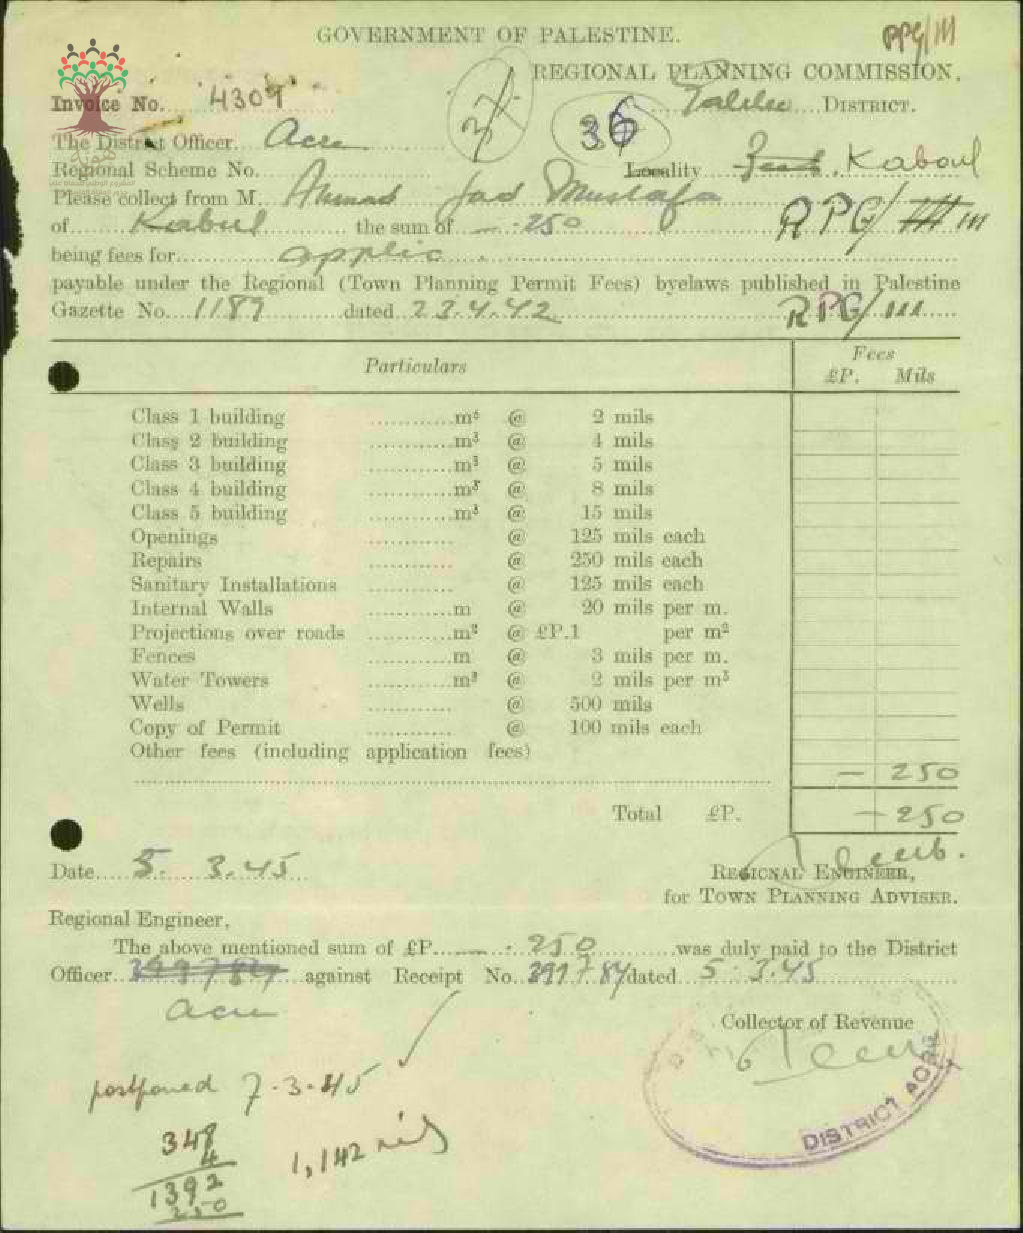 GOVERNMENT OF PALESTINE.
PPG/111
REGIONAL PLANNING COMMISSION.
Invoice No. 4309
37
36
Galilee DISTRICT.
The District Officer. Acre
Regional Scheme No.
Locality Kaboul
Please collect from M. Ahmad Mustafa
of Kabul the sum of — . 250
RPG/111
being fees for applic
payable under the Regional (Town Planning Permit Fees) byelaws published in Palestine
Gazette No. 1189 dated 23.4.42
RPG/111
Particulars
Fees
£P. Mils
Class 1 building m³ @ 2 mils
Class 2 building m³ @ 4 mils
Class 3 building m³ @ 5 mils
Class 4 building m³ @ 8 mils
Class 5 building m³ @ 15 mils
Openings @ 125 mils each
Repairs @ 250 mils each
Sanitary Installations @ 125 mils each
Internal Walls m @ 20 mils per m.
Projections over roads m² @ £P.1 per m²
Fences m @ 3 mils per m.
Water Towers m³ @ 2 mils per m³
Wells @ 500 mils
Copy of Permit @ 100 mils each
Other fees (including application fees)
— 250
Total £P. — 250
Date 5. 3.45
REGIONAL ENGINEER,
for TOWN PLANNING ADVISER.
Regional Engineer,
The above mentioned sum of £P. — . 250 was duly paid to the District
Officer 399784 against Receipt No. 399784 dated 5.3.45
Acre
Collector of Revenue
DISTRICT ACRE
postponed 7.3.45
348
4
1392
250
1,142 mils